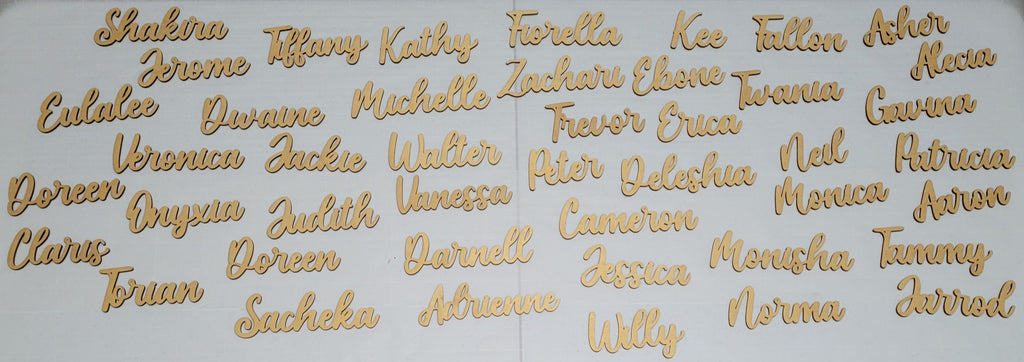 Shakira
Tiffany
Kathy
Fiorella
Kee
Fallon
Asher
Jerome
Alecia
Eulalee
Dwaine
Michelle
Zachari
Ebone
Twania
Gavina
Trevor
Erica
Veronica
Jackie
Walter
Peter
Deleshia
Neil
Patricia
Doreen
Onyxia
Judith
Vanessa
Cameron
Monica
Aaron
Claris
Doreen
Darnell
Jessica
Monisha
Tammy
Torian
Sacheka
Adrienne
Willy
Norma
Jarrod